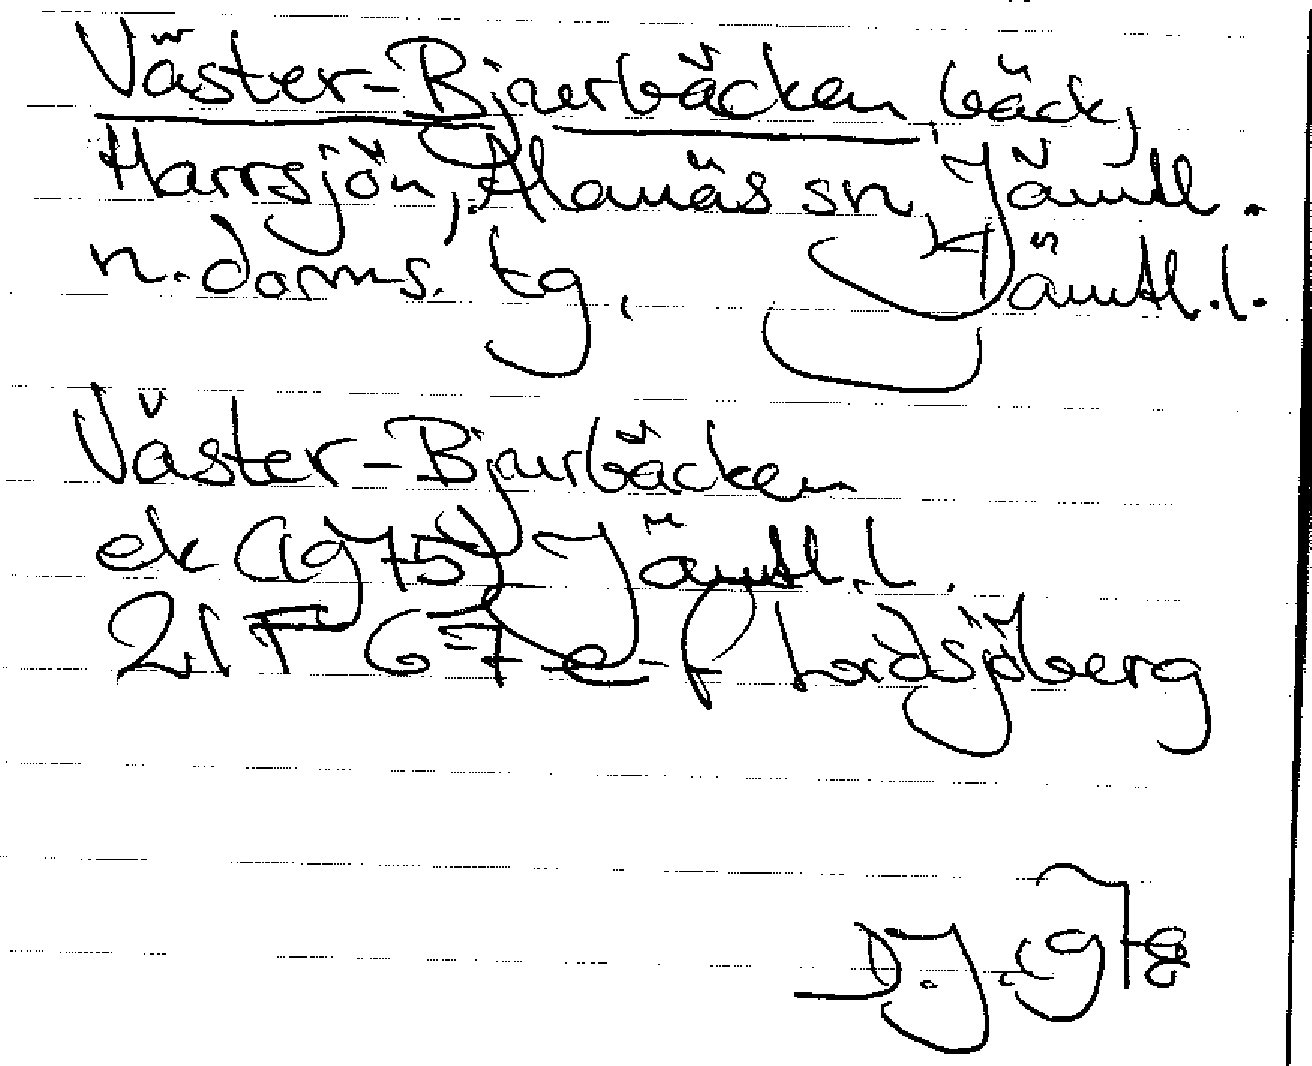 Väster-Bjurbäcken, bäck,
Harrsjön, Alanäs sn, Jämtl.
n. doms. tg, Jämtl. l.
Väster-Bjurbäcken
ek (1975) Jämtl. l.
21F 6-7 e-f Lidsjöberg